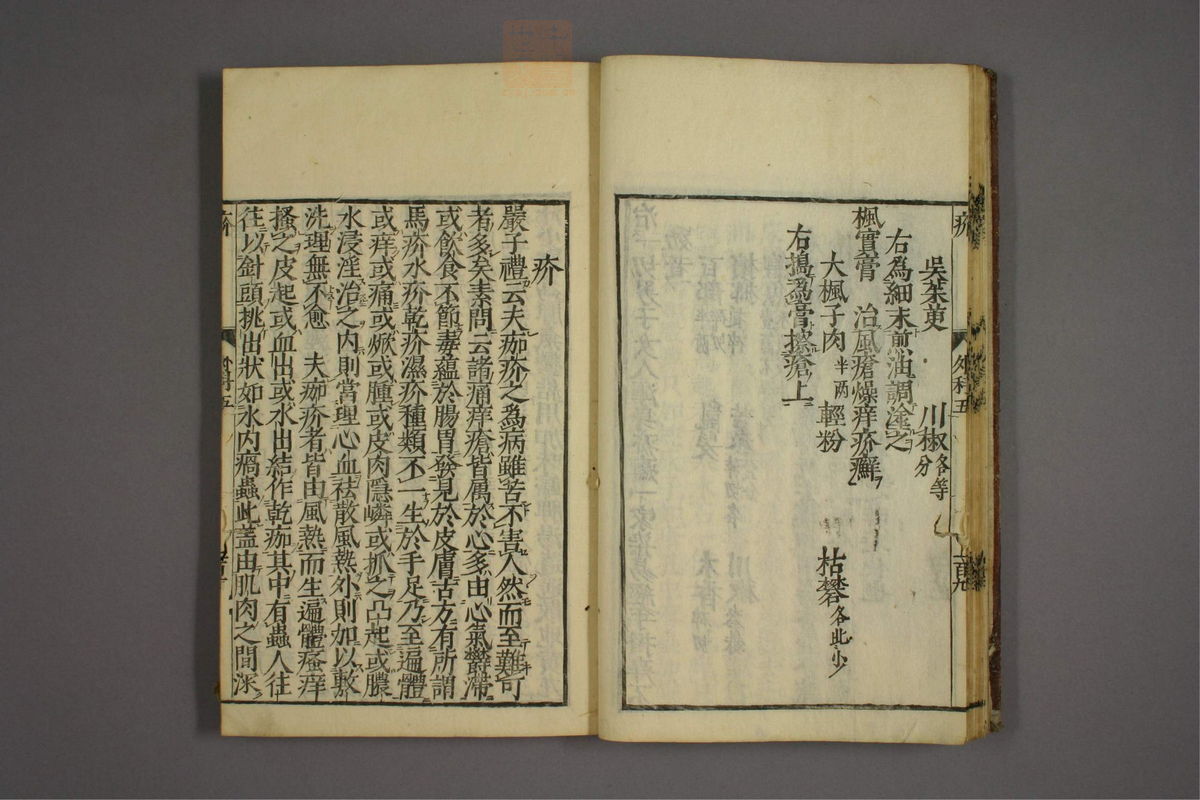 疥 外科五 百九
吳茱萸 川椒各等分
右為細末煎油調塗之
楓實膏 治風瘡燥痒疥癬
大楓子肉半两 輕粉 枯礬各些少
右搗為膏擦瘡上
疥
嚴子禮云夫痂疥之為病雖苦不害人然而至難可
者多矣素問云諸痛痒瘡皆屬於心多由心氣鬱滯
或飲食不節毒蘊於腸胃發見於皮膚古方有所謂
馬疥水疥乾疥濕疥種類不一生於手足乃至遍體
或痒或痛或焮或腫或皮肉隱嶙或抓之凸起或膿
水浸淫治之内則當理心血祛散風熱外則加以敷
洗理無不愈 夫痂疥者皆由風熱而生遍體瘙痒
搔之皮起或血出或水出結作乾痂其中有蟲人往
往以針頭挑出狀如水内瘑蟲此盖由肌肉之間深
疥